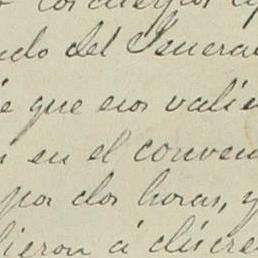 los cuerpos
ndo del General
e que esos valie
n en el conven
por dos horas, y
dieron á discre